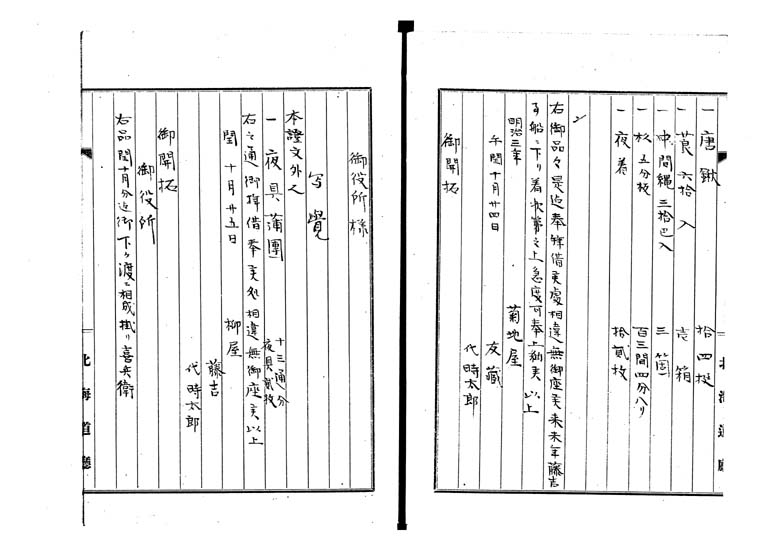 一唐鍬 拾四挺
一莨六拾入 壱箱
一中間縄三拾巴入 三箇
一杉五分板 百三間四分八リ
一夜着 拾貳枚
〆
右御品々是迄奉拝借候處相違無御座候来未年藤吉
手船ニ下リ着次第之上急度可奉上納候以上
明治三年
午閏十月廿四日 菊地屋
友藏
代時太郎
御開拓
御役所様
写覺
本證文外ニ
一夜具蒲團 十三通分
夜具貳枚
右之通御拝借奉候処相違無御座候以上
閏十月廿五日 柳屋
藤吉
代時太郎
御開拓
御役所
右品閏十月分迄御下ケ渡ニ相成掛リ喜兵衛
北海道廳
北海道廳